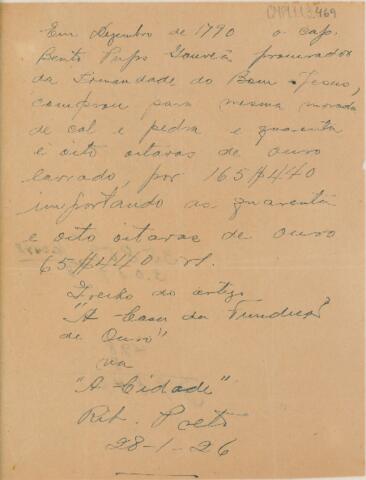 CM9113,469
Em Dezembro de 1790 o cap.
Bento Pupo Gouvêa procurador
da Irmandade do Bom Jesus,
comprou para mesma morada
de cal e pedra e quarenta
e oito oitavas de ouro
lavrado, por 165$440
importando as quarenta
e oito oitavas de ouro
65$440 rs.
Trecho do artigo
"A Casa da Fundição
de Ouro"
na
"A Cidade"
Rib. Preto
28-1-26